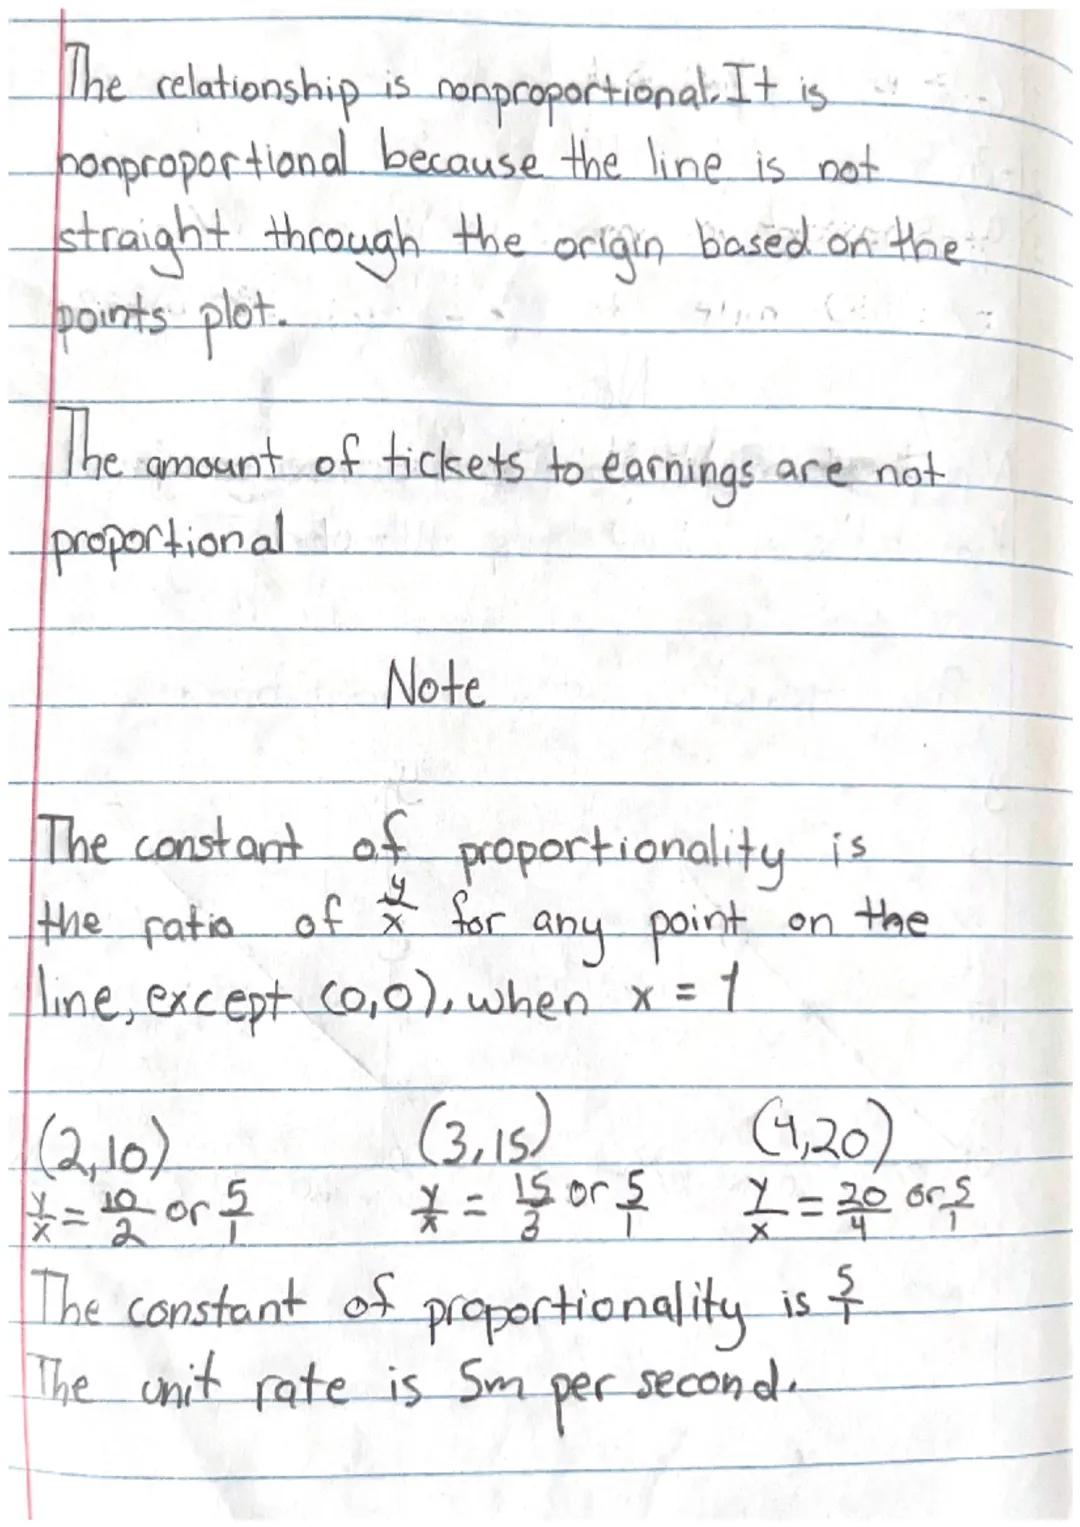 The relationship is nonproportional. It is
nonproportional because the line is not
straight through the origin based on the
points plot.
The amount of tickets to earnings are not
proportional
Note
The constant of proportionality is
the ratio of y/x for any point on the
line, except (0,0), when x = 1
(2,10) (3,15) (4,20)
y/x = 10/2 or 5/1 y/x = 15/3 or 5/1 y/x = 20/4 or 5/1
The constant of proportionality is 5/1
The unit rate is 5m per second.